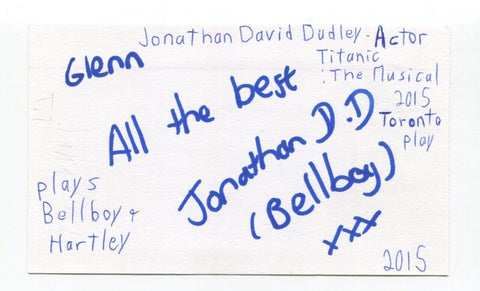 Jonathan David Dudley. Actor
Titanic
: The Musical
2015
Toronto
play
Glenn
All the best
Jonathan D.D
(Bellboy)
xxx
plays
Bellboy &
Hartley
2015